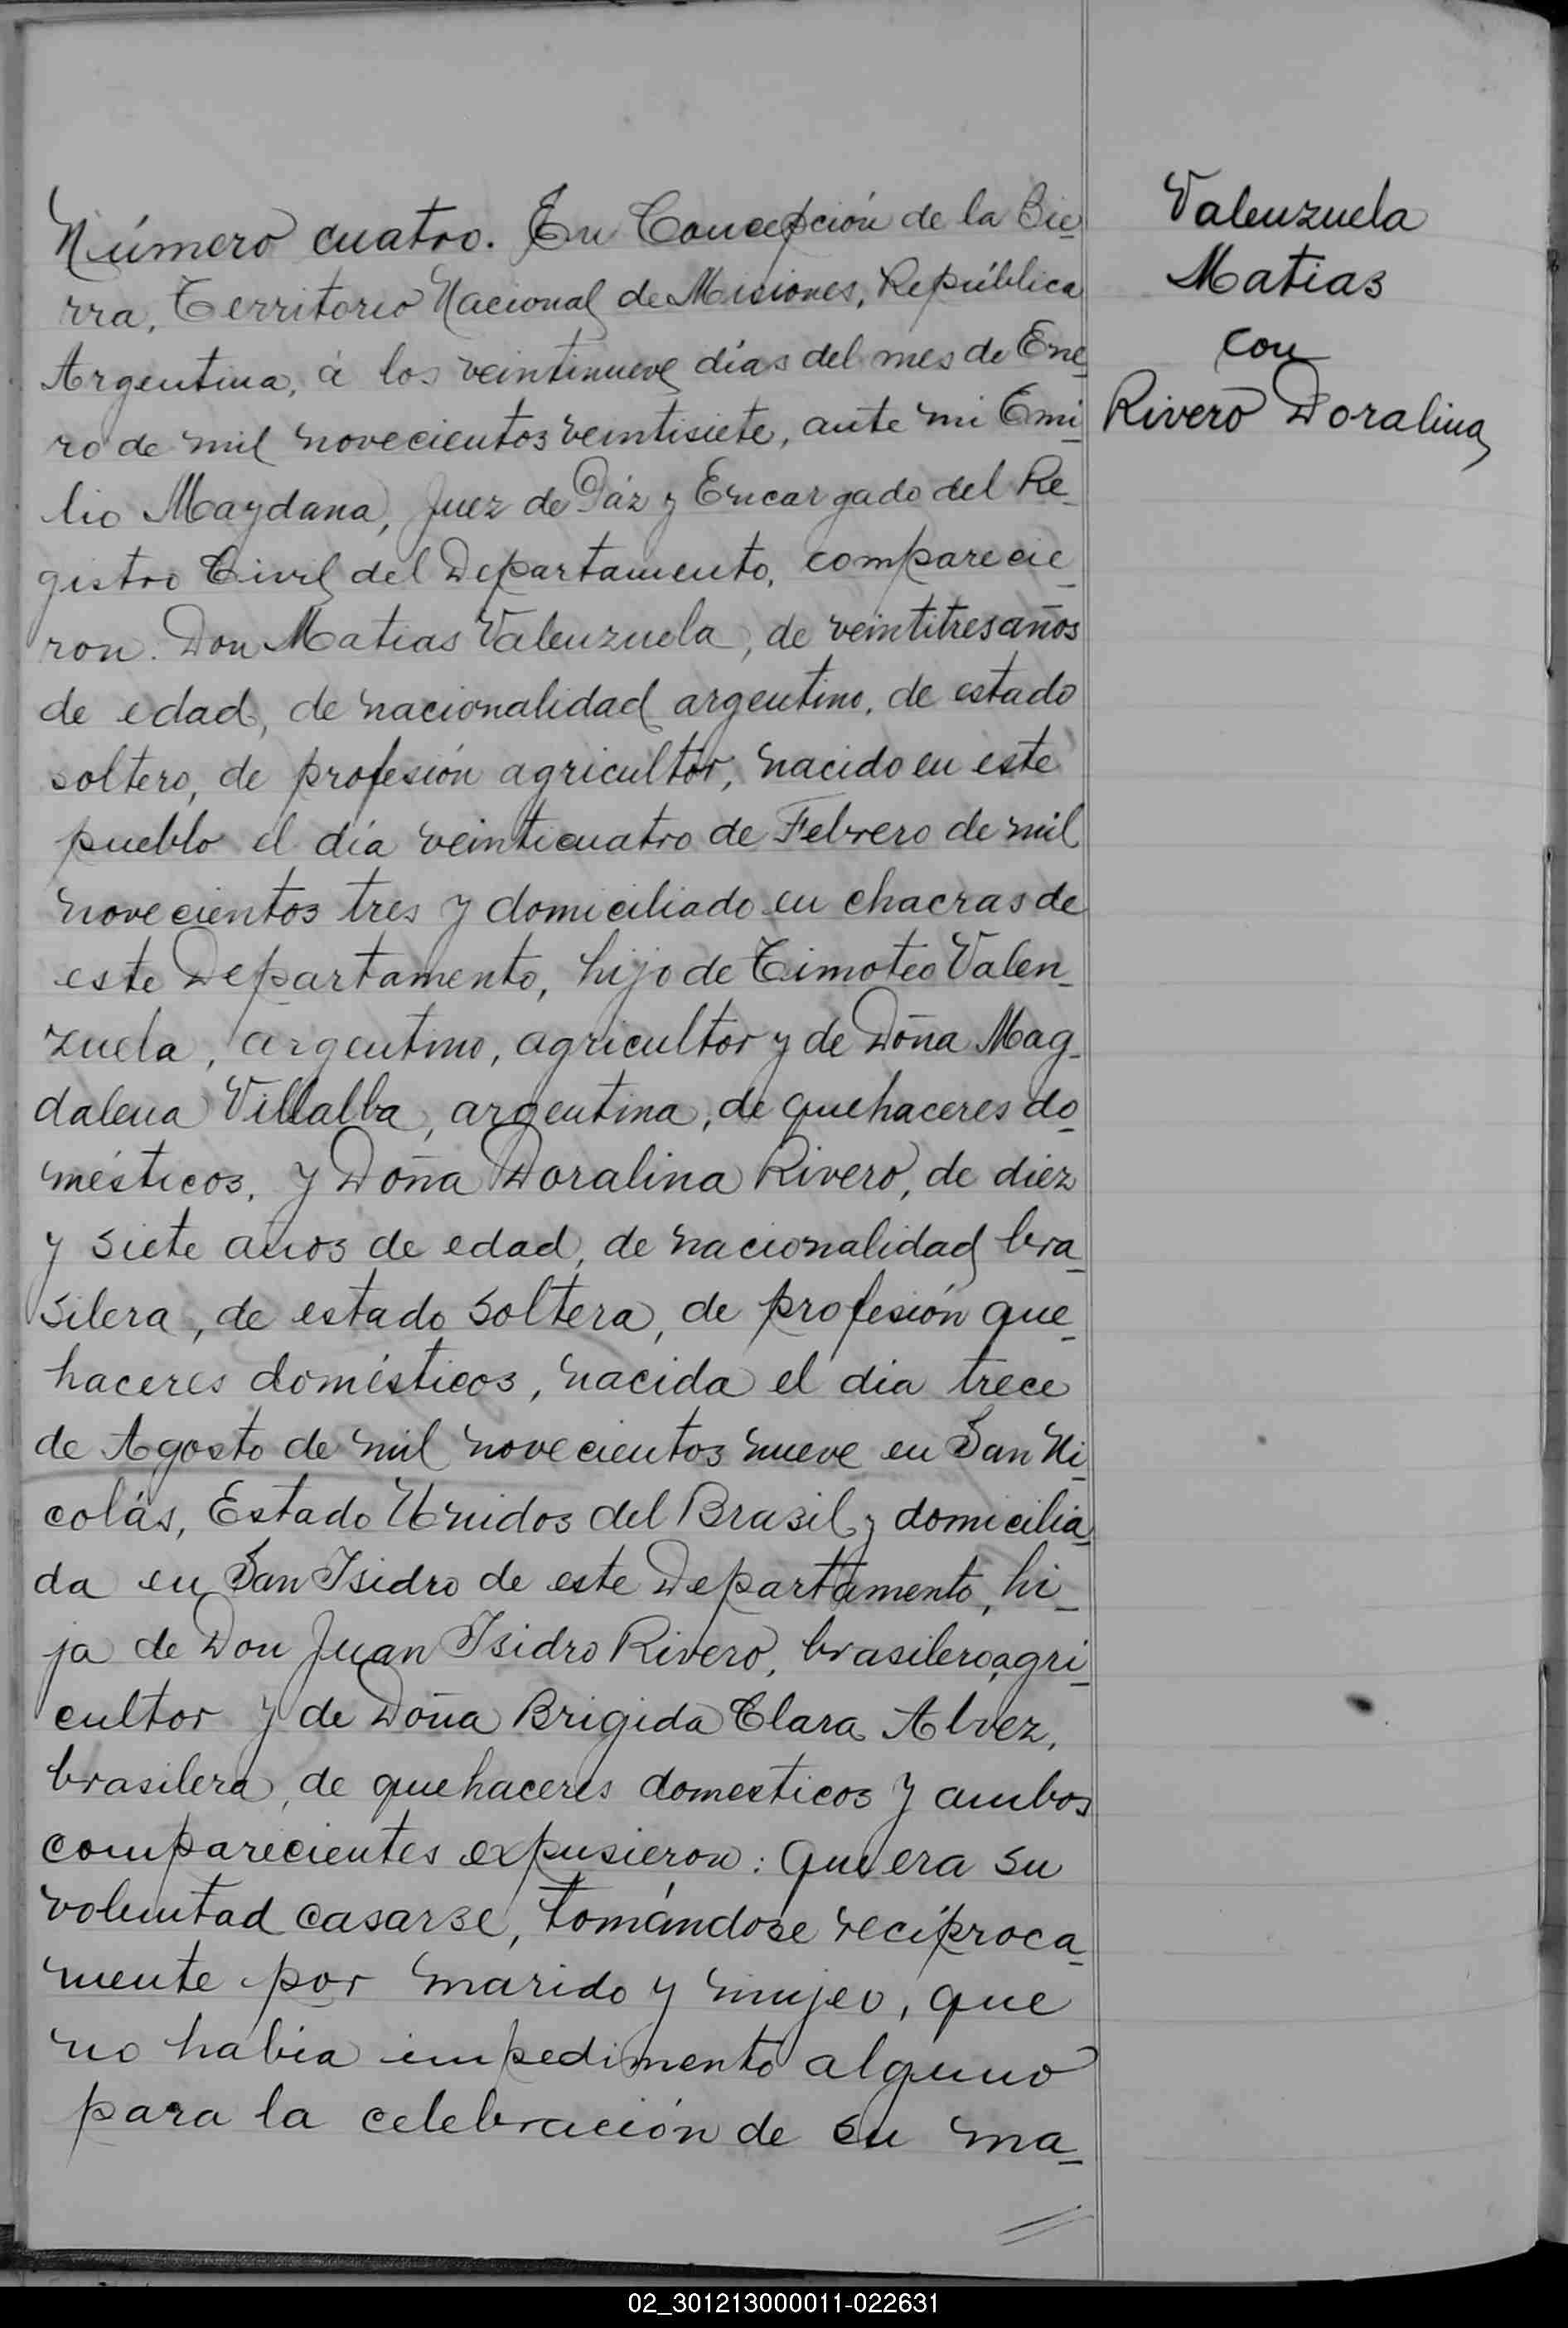 Número cuatro. En Concepción de la Sie
rra, Territorio Nacional de Misiones, República
Argentina, á los veintinueve días del mes de Ene
ro de mil novecientos veintisiete, ante mi Emi
lio Maydana, Juez de Páz y Encargado del Re
gistro Civil del Departamento, comparecie
ron. Don Matias Valenzuela, de veintitres años
de edad, de nacionalidad argentino, de estado
soltero, de profesión agricultor, nacido en este
pueblo el día veinticuatro de Febrero de mil
novecientos tres y domiciliado en chacras de
este Departamento, hijo de Timoteo Valen
zuela, argentino, agricultor y de Doña Mag
dalena Villalba, argentina, de quehaceres do
mésticos, y Doña Doralina Rivero, de diez
y siete años de edad, de nacionalidad bra
silera, de estado soltera, de profesión que
haceres domésticos, nacida el dia trece
de Agosto de mil novecientos nueve en San Ni
colás, Estado Unidos del Brasil y domicilia
da en San Isidro de este Departamento, hi
ja de Don Juan Isidro Rivero, brasilero, agri
cultor y de Doña Brigida Clara Alvez,
brasilera, de quehaceres domesticos y ambos
comparecientes expusieron: que era su
voluntad casarse, tomándose recíproca
mente por marido y mujer, que
no habia impedimento alguno
para la celebración de su ma
Valenzuela
Matias
con
Rivero Doralina
02_301213000011-022631